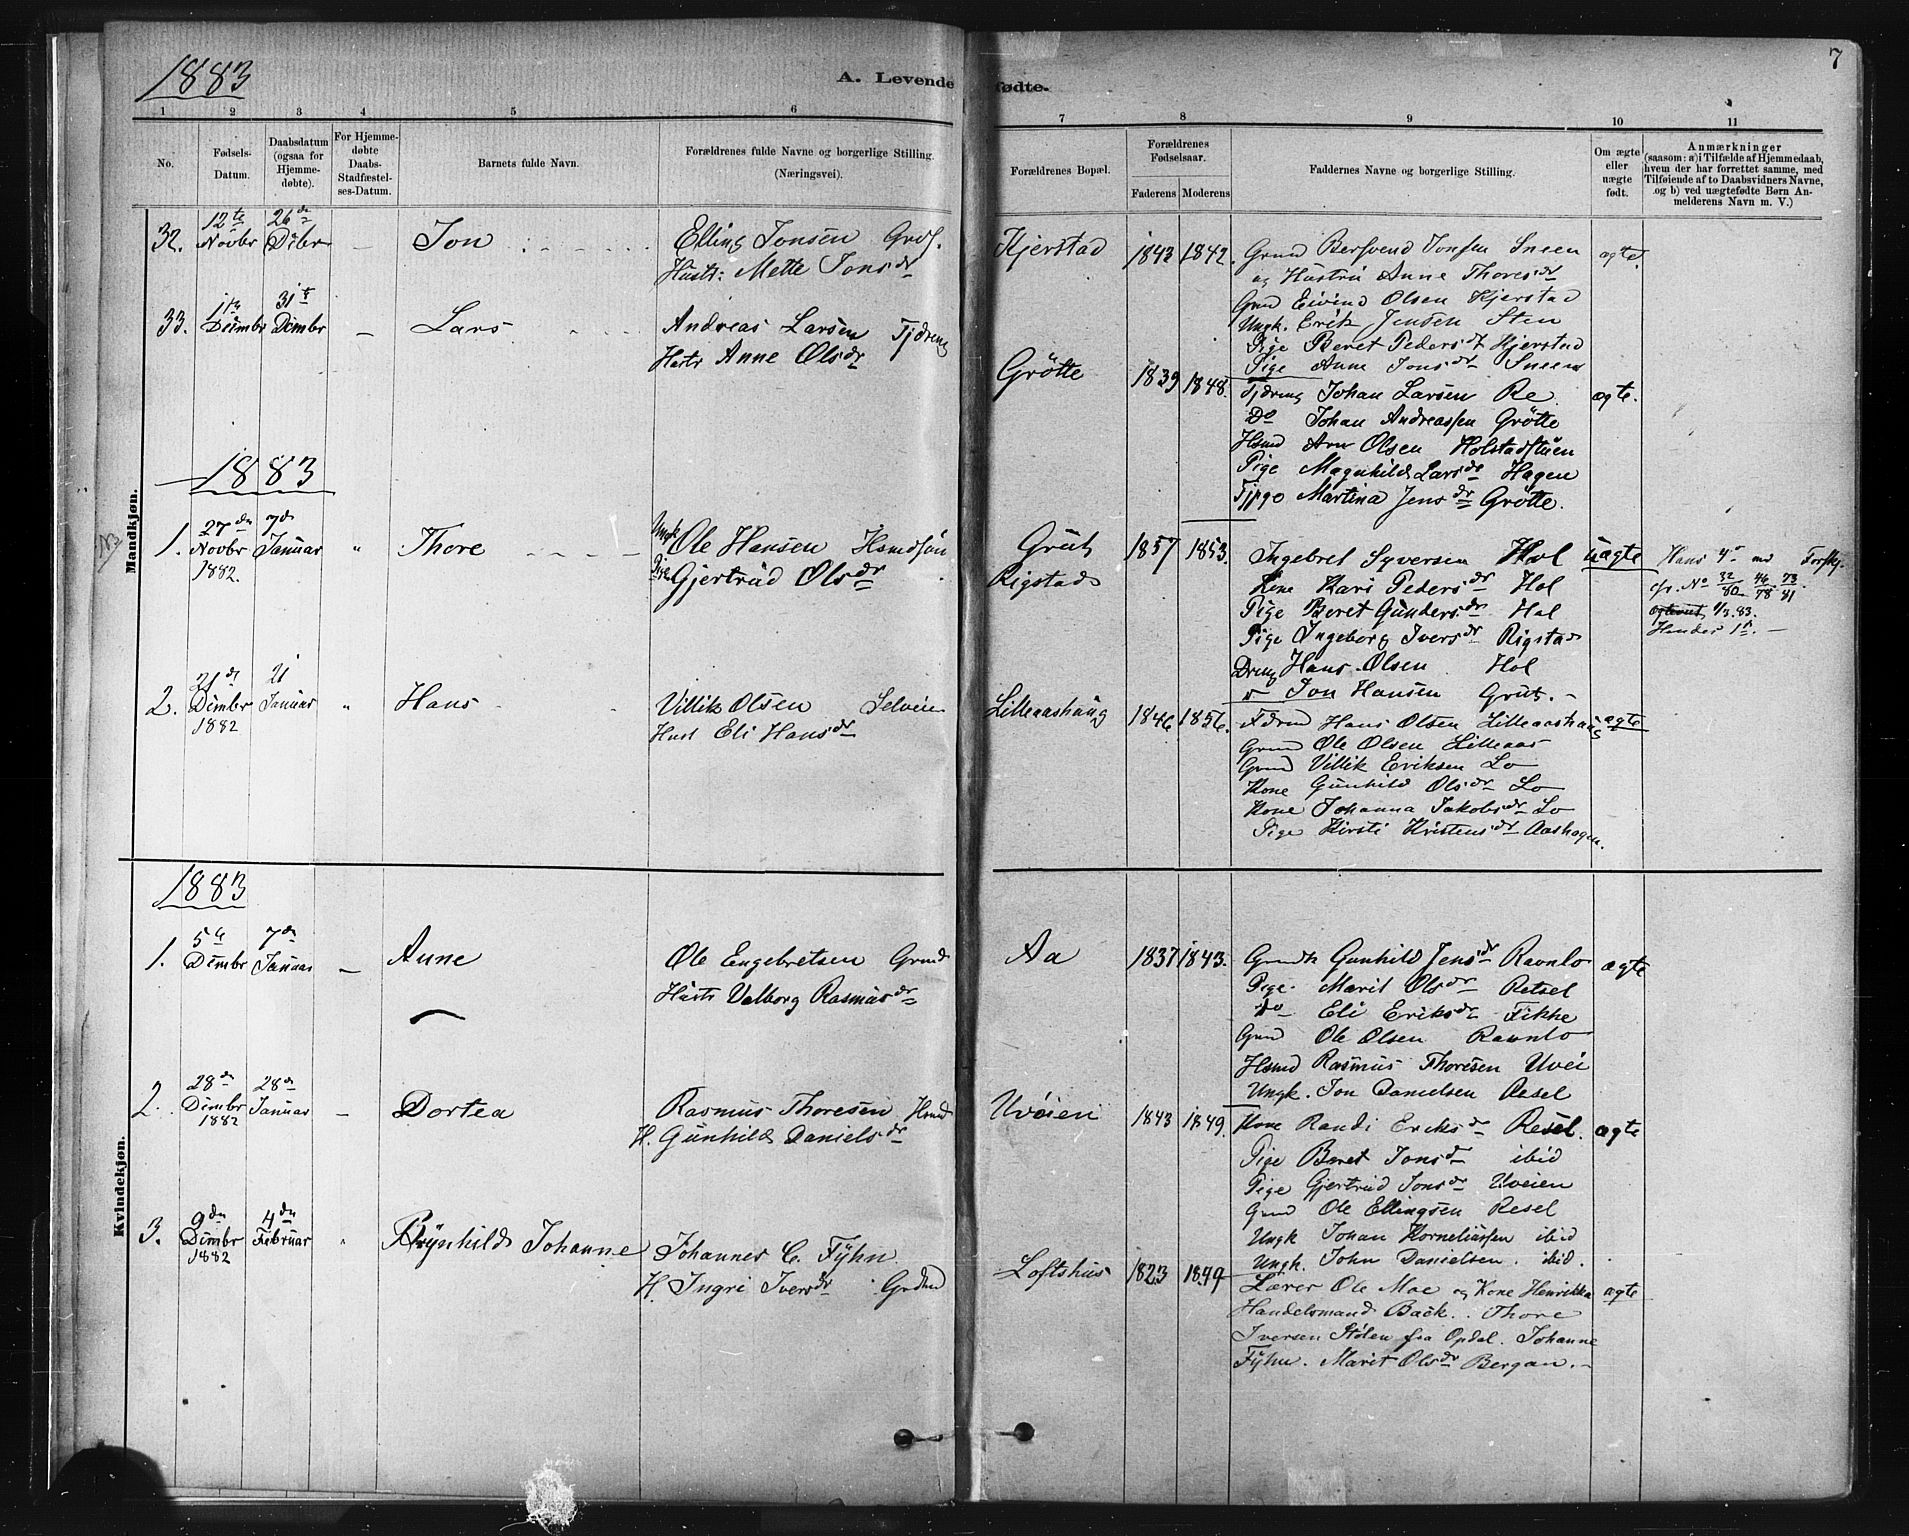 1883
A. Levende
fødte.
7
1 2 3 4 5 6 7 8 9 10 11
No.
Fødsels-Datum.
Daabsdatum (ogsaa for Hjemmedøbte).
For Hjemmedøbte Daabs-Stadfæstelses-Datum.
Barnets fulde Navn.
Forældrenes fulde Navne og borgerlige Stilling. (Næringsvei).
Forældrenes Bopæl.
Forældrenes Fødselsaar.
Faderens Moderens
Faddernes Navne og borgerlige Stilling.
Om ægte eller uægte født.
Anmærkninger
(saasom: a) i Tilfælde af Hjemmedaab,
hvem der har forrettet samme, med
Tilføiende af to Daabsvidners Navne,
og b) ved uægtefødte Børn An-
melderens Navn m. V.)
Mandkjøn.
32. 12te Novbr 26de Dcbr – Jon Elling Jonsen Grdf. Kjerstad 1843 1842. ægte.
Hustr: Mette Jonsdr
Grmd Bersvend Jonsen Sneen
og Hustru Anne Thoresdr
Gmd Eivind Olsen Kjerstad
Ungk. Erik Jensen Sten
Pige Beret Pedersdr Kjerstad
Pige Anne Jonsdr Sneen
33. 1te Dcimbr 31te Dcimbr – Lars Andreas Larsen Tjdreng Grøtte 1839 1848. ægte.
Hustr Anne Olsdr
Tjdreng Johan Larsen Re
Do Johan Andreassen Grøtte
Hsmd Arn Olsen Holstadstuen
Pige Magnhild Larsdr Hagen
Tjpge Martina Jensdr Grøtte.
1883
1. 27de Novbr 1882. 7de Januar " Thore Ungk Ole Hansen Hsmdsøn Grut 1857 1853. uægte
Pige Gjertrud Olsdr Rigstad
Ingebret Syversen Hol
Kone Kari Pedersdr Hol
Pige Beret Gundersdr Hol
Pige Ingeborg Iversdr Rigstad
Dreng Hans Olsen Hol
Jon Hansen Grut. –
Hans 4de md Forsky.
cfr. No 32/80 46/78 73/81
1/3.83.
Hendes 1te. –
2. 21de Dcimbr 1882 21 Januar " Hans Villik Olsen Selveier Lilleaashaug 1846 1856. ægte
Hust Eli Hansdr
Hans Olsen Lilleaashaug
Grmd Ole Olsen Lilleaas
Grmd Villik Eriksen Lo
Kone Gunhild Olsdr Lo
Kone Johanna Jakobsdr Lo
Pige Kirsti Kristensdr Aashagen.
1883
Kvindekjøn.
1. 5te Dcimbr 7de Januar – Anne Ole Engebretsen Grmd Aa 1837 1843. ægte
Hustr Valborg Rasmusdr
Gunhild Jensdr Ravnlo
Pige Marit Olsdr Retsel
do Eli Eriksdr Fikke
Gmd Ole Olsen Ravnlo
Hsmd Rasmus Thoresen Uvei
Ungk. Jon Danielsen Resel
2. 28de Dcimbr 1882 28de Januar – Dortea Rasmus Thoresen Hsmd Uvøien 1843 1849. ægte
H. Gunhild Danielsdr
Kone Randi Eriksdr Resel.
Pige Beret Jonsdr ibid
Pige Gjertrud Jonsdr Uveien
Gmd Ole Ellingsen Resel
Ungk Johan Korneliussen ibid
Ungk. John Danielsen ibid.
3. 9de Dcimbr 1882 4de Februar " Brynhild Johanne Johannes C. Fyhn Loftshus 1823 1849 ægte
H. Ingri Iversdr Grdmd
Lærer Ole Moe og Kone Henrikka
Handelsmand Back. Thore
Iversen Stølen fra Opdal. Johanne
Fyhn. Marit Olsdr Bergan. –